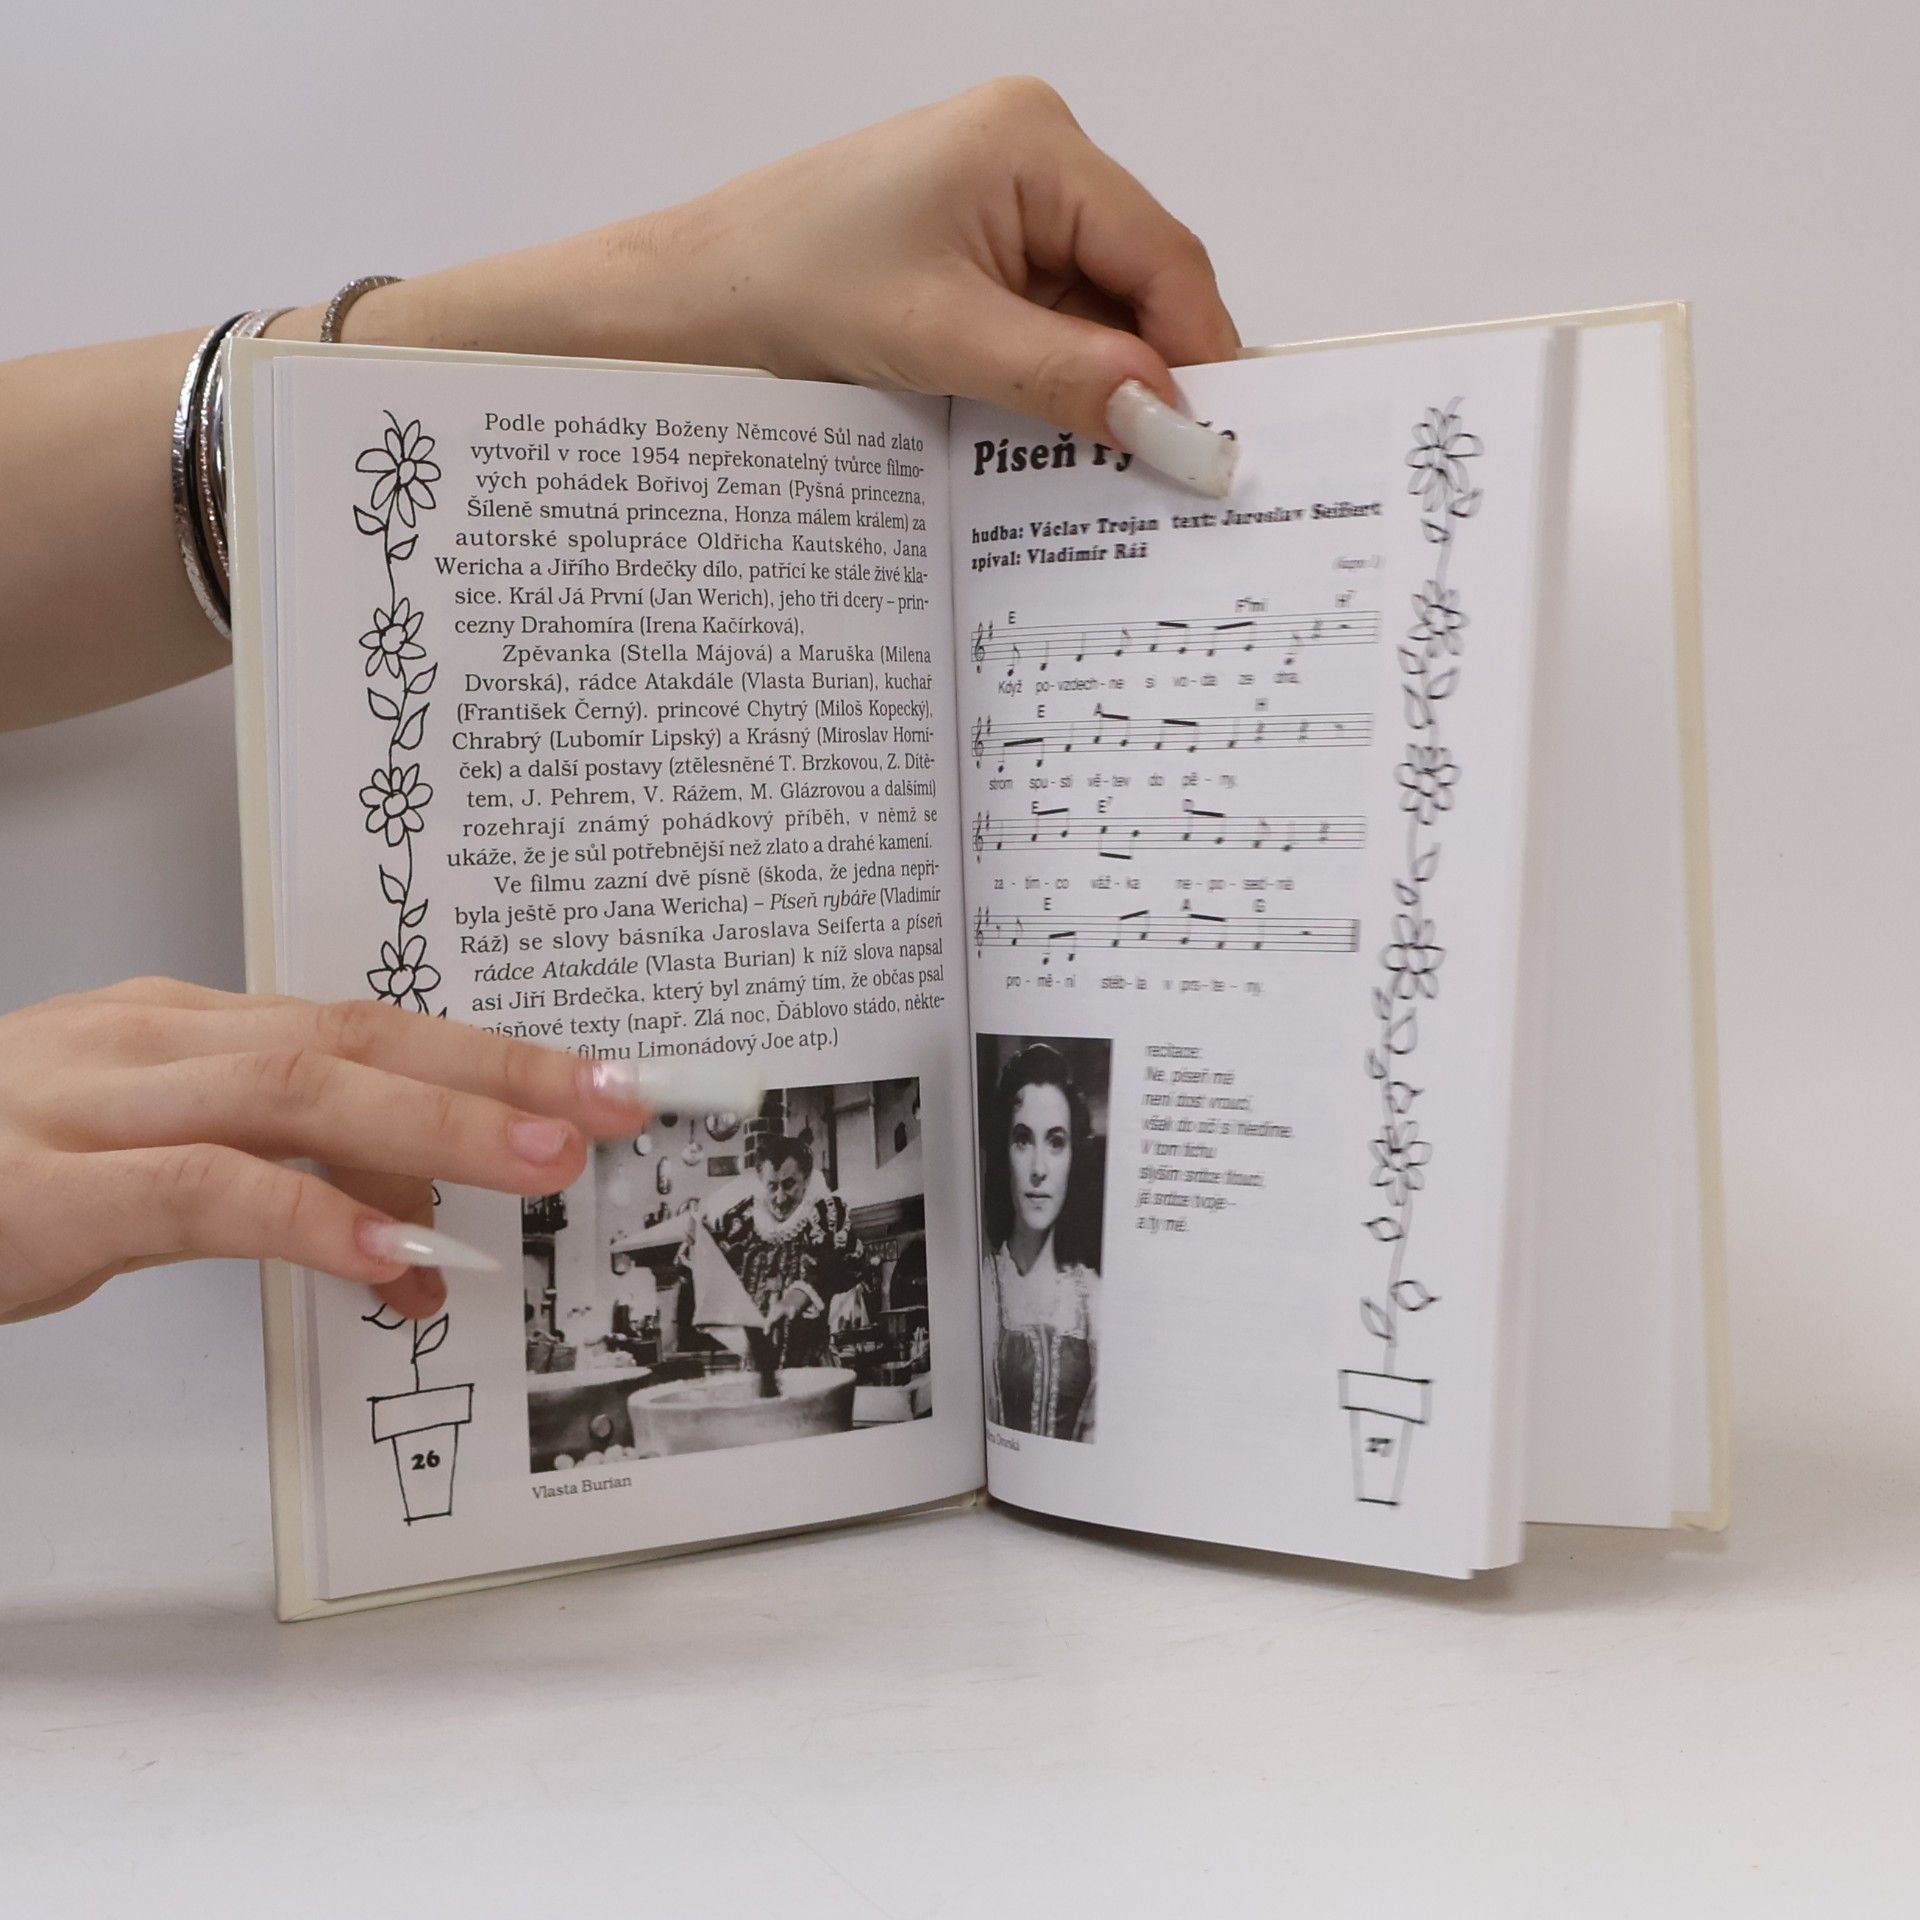 Podle pohádky Boženy Němcové Sůl nad zlato
vytvořil v roce 1954 nepřekonatelný tvůrce filmo-
vých pohádek Bořivoj Zeman (Pyšná princezna,
Šíleně smutná princezna, Honza málem králem) za
autorské spolupráce Oldřicha Kautského, Jana
Wericha a Jiřího Brdečky dílo, patřící ke stále živé kla-
sice. Král Já První (Jan Werich), jeho tři dcery – prin-
cezny Drahomíra (Irena Kačírková),
Zpěvanka (Stella Májová) a Maruška (Milena
Dvorská), rádce Atakdále (Vlasta Burian), kuchař
(František Černý). princové Chytrý (Miloš Kopecký),
Chrabrý (Lubomír Lipský) a Krásný (Miroslav Horní-
ček) a další postavy (ztělesněné T. Brzkovou, Z. Dítě-
tem, J. Pehrem, V. Rážem, M. Glázrovou a dalšími)
rozehrají známý pohádkový příběh, v němž se
ukáže, že je sůl potřebnější než zlato a drahé kamení.
Ve filmu zazní dvě písně (škoda, že jedna nepři-
byla ještě pro Jana Wericha) – Píseň rybáře (Vladimír
Ráž) se slovy básníka Jaroslava Seiferta a píseň
rádce Atakdále (Vlasta Burian) k níž slova napsal
asi Jiří Brdečka, který byl známý tím, že občas psal
písňové texty (např. Zlá noc, Ďáblovo stádo, někte-
filmu Limonádový Joe atp.)
26
Vlasta Burian
Píseň
hudba: Václav Trojan text: Jaroslav Seifert
zpíval: Vladimír Ráž
E F#mi H7
Když po-vzdech-ne si vo-da ze dna,
E A H
strom spu-stí vě-tev do pě-ny,
E E7 D
za-tím-co váž-ka ne-po-sed-ná
E A G
pro-mě-ní stéb-la v prs-te-ny.
recitace:
Ne, píseň má
není dost vroucí,
však do očí si hledíme.
V tom tichu
slyším srdce tlouci,
já srdce tvoje –
a ty mé.
Dvorská
27